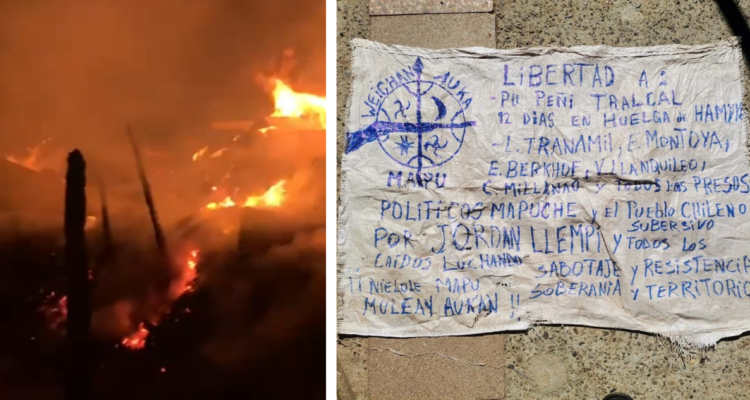 WEICHAN AUKA
MAIPU
LIBERTAD A:
- PU PEÑI TRALCAL
12 DIAS EN HUELGA DE HAMBRE
- L. TRANAMIL, E. MONTOYA,
E. BERKHOF, V. LLANQUILEO,
C. MILLANAO Y TODOS LAS PRESOS
POLITICOS MAPUCHE Y EL PUEBLO CHILENO
SUBERSIVO
POR JORDAN LLEMPI Y TODOS LOS
CAIDOS LUCHANDO SABOTAJE Y RESISTENCIA
¡¡ ÑIELOLE MAPU SOBERANIA Y TERRITORIO
MULEAY AUKAN !!